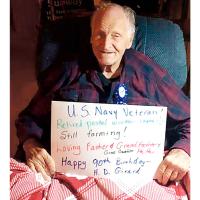 U.S. Navy Veteran!
Retired postal window
Still farming!
Loving Father & Grandfather
Happy 90th Birthday-
H. D. Girard